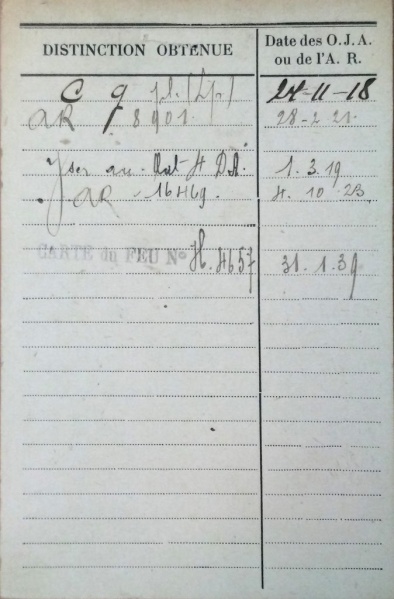 DISTINCTION OBTENUE
Date des O.J.A. ou de l'A. R.
C g 24-11-18
AR 8901 28-2 21
Yser au 4 D.A. 1.3.19
AR 16469. 4. 10 23
CARTE du FEU N° H. 4657 31.1.39